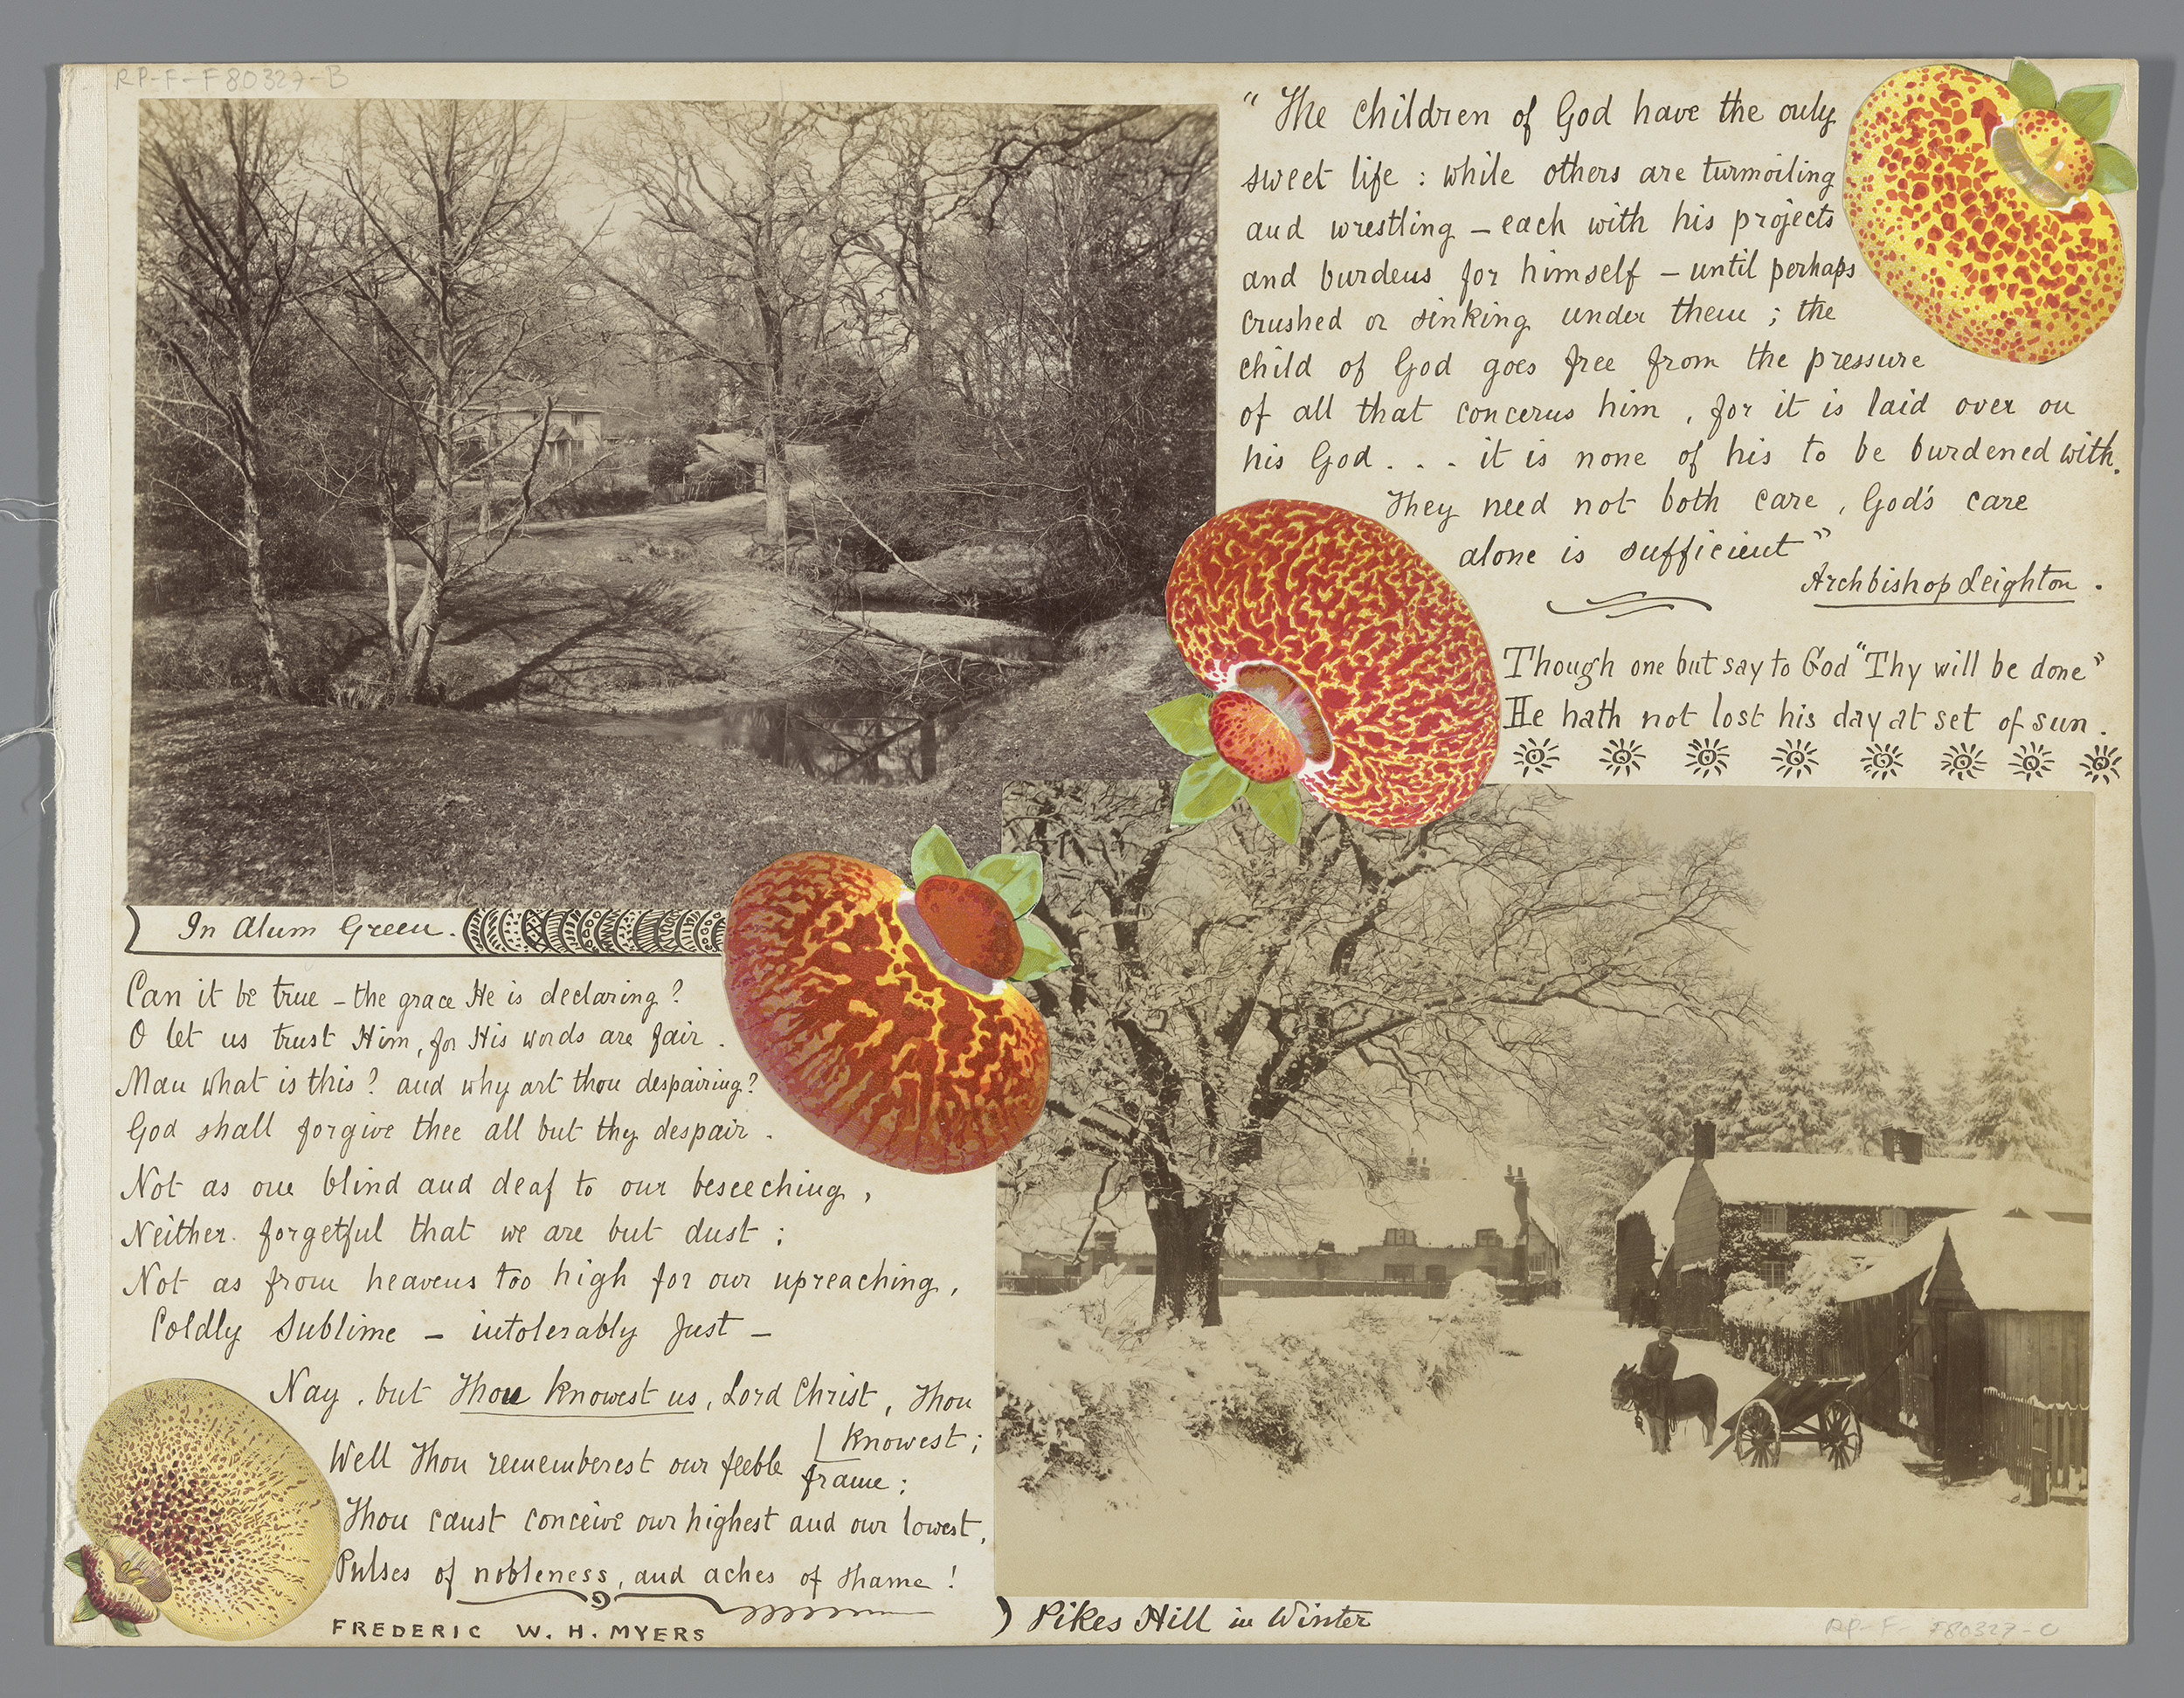 RP-F-F80327-B
In Alum Green.
Can it be true – the grace He is declaring?
O let us trust Him, for His words are fair.
Man what is this? and why art thou despairing?
God shall forgive thee all but thy despair.
Not as one blind and deaf to our beseeching,
Neither forgetful that we are but dust;
Not as from heavens too high for our upreaching,
Coldly Sublime – intolerably Just –
Nay, but Thou knowest us, Lord Christ, Thou
knowest;
Well Thou rememberest our feeble
frame;
Thou canst conceive our highest and our lowest,
Pulses of nobleness, and aches of shame!
FREDERIC W. H. MYERS
"The children of God have the only
sweet life : while others are turmoiling
and wrestling – each with his projects
and burdens for himself – until perhaps
crushed or sinking under them ; the
child of God goes free from the pressure
of all that concerns him, for it is laid over on
his God . . . it is none of his to be burdened with.
They need not both care, God's care
alone is sufficient"
Archbishop Leighton.
Though one but say to God "Thy will be done"
He hath not lost his day at set of sun.
Pikes Hill in Winter
RP-F-F80327-C